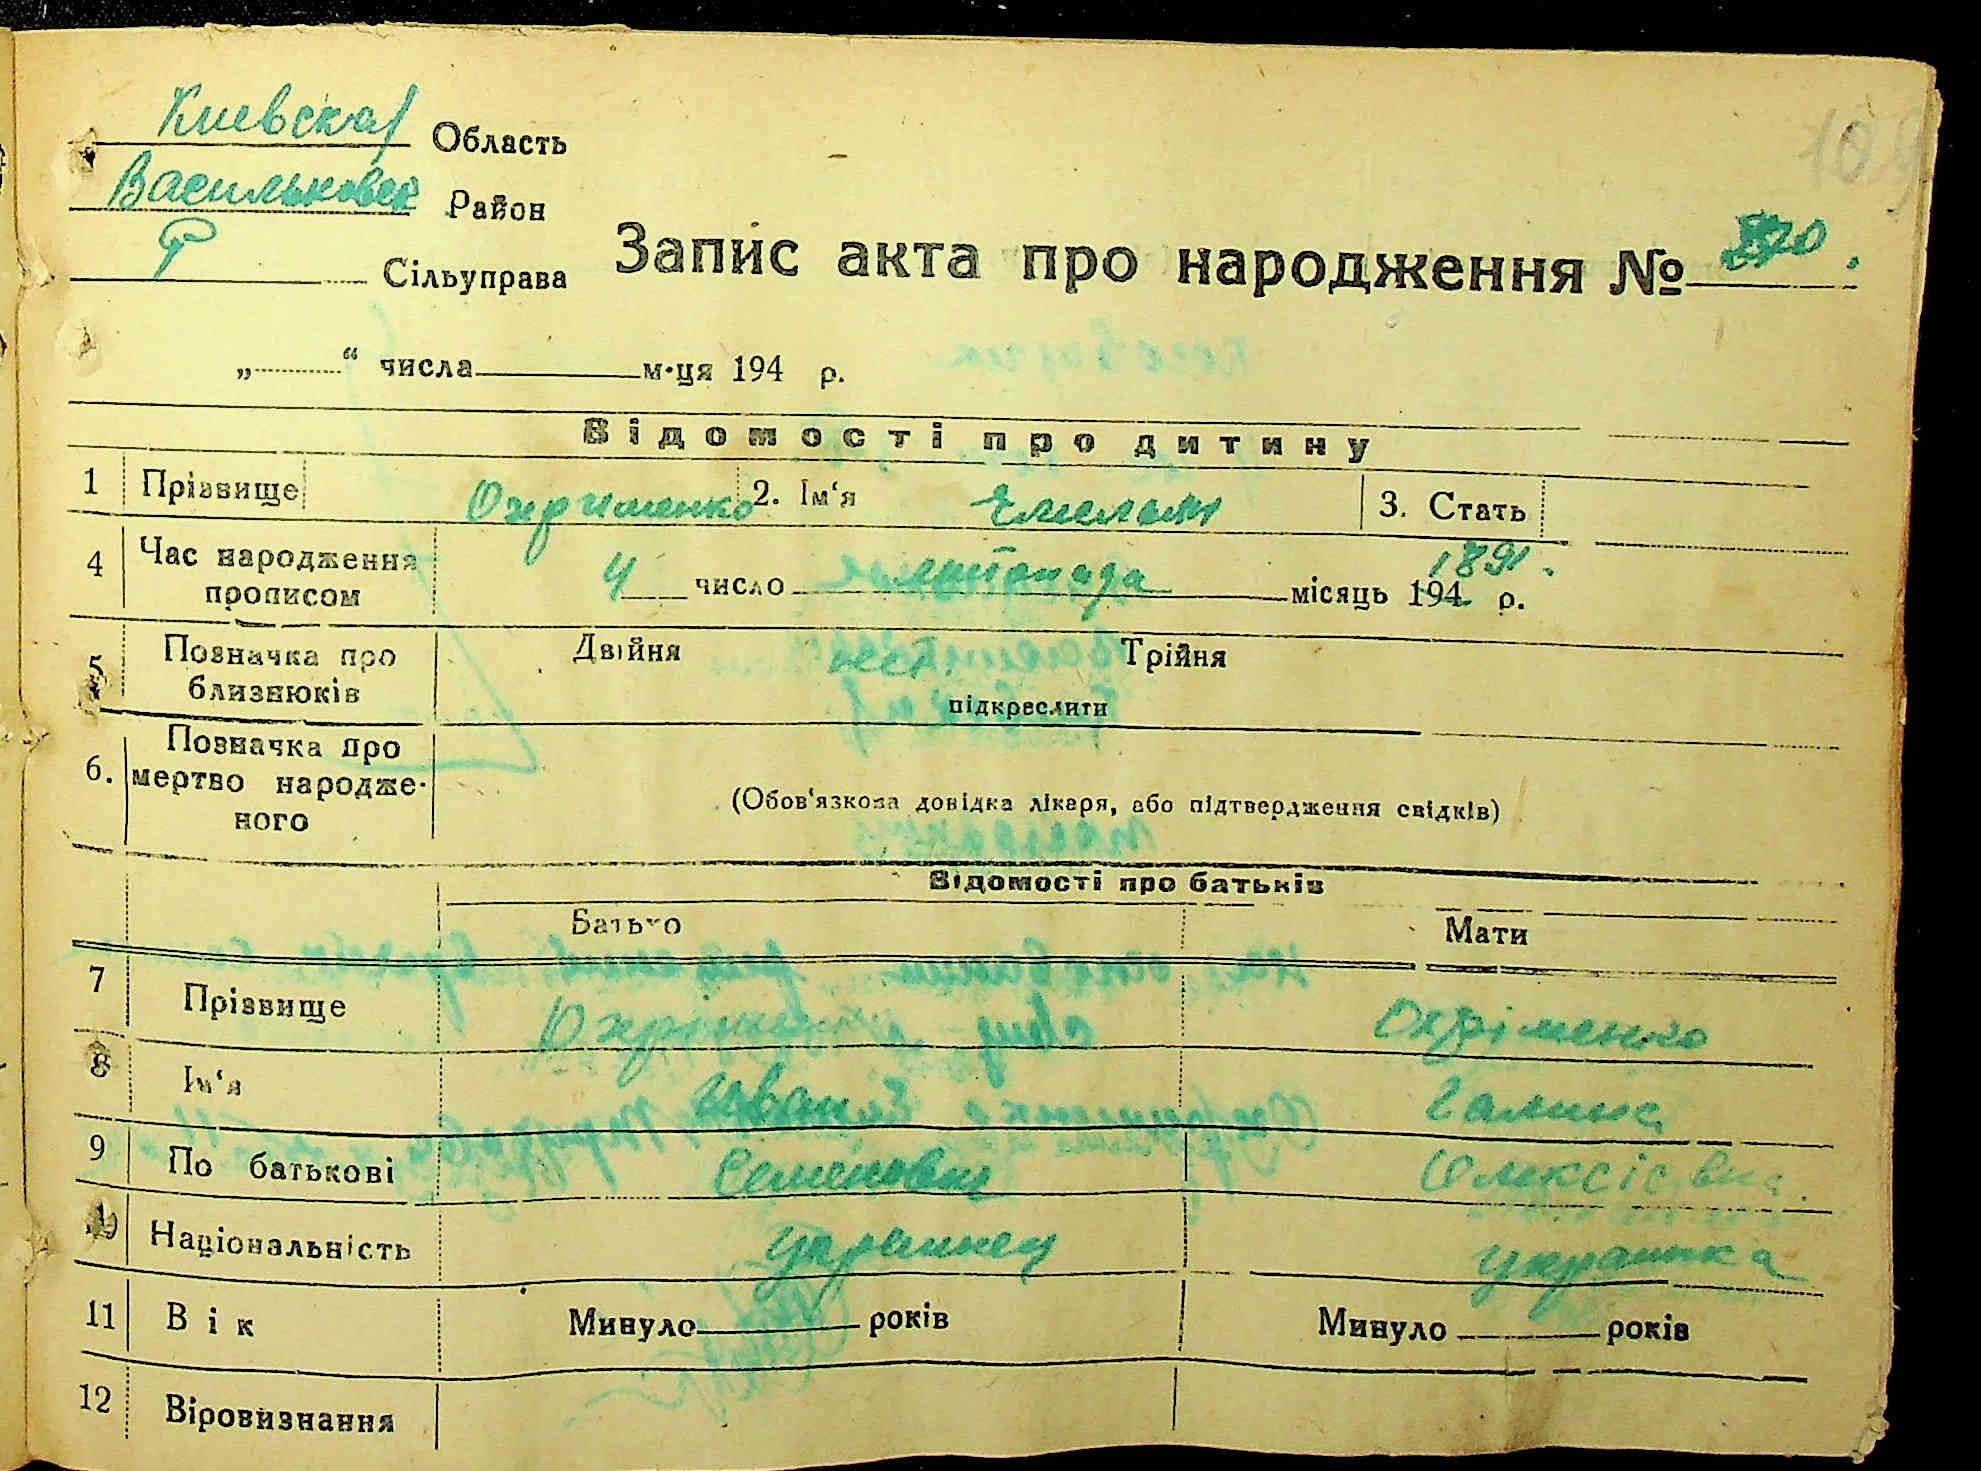 Киевская Область
Васильковск Район
Сільуправа
Запис акта про народження №
„ “ числа м-ця 194 р.
Відомості про дитину
1 Прізвище Охрименко 2. Ім‘я Емельян 3. Стать
4 Час народження прописом 4 число листопада місяць 194 1891. р.
5 Позначка про близнюків Двійня Трійня
підкреслити
6. Позначка про мертво народже-
ного (Обов‘язкова довідка лікаря, або підтвердження свідків)
Відомості про батьків
Батько Мати
7 Прізвище Охріменко Охріменко
8 Ім‘я Иван Галина
9 По батькові Семенович Олексієвна.
10 Національність украинец украинка
11 Вік Минуло років Минуло років
12 Віровизнання